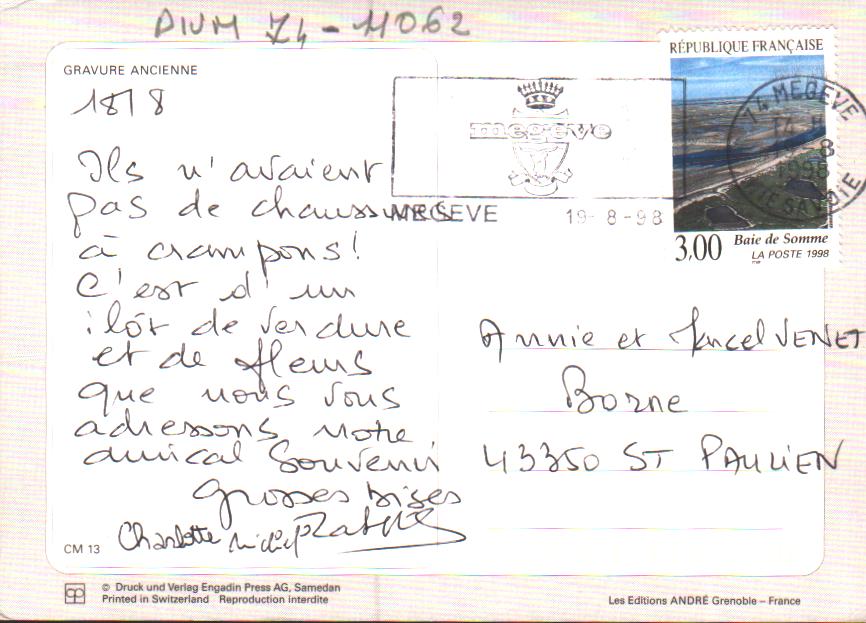 DIVM 74-11062
GRAVURE ANCIENNE
18/8
Ils n'avaient
pas de chaussures
à crampons!
C'est d'un
ilôt de verdure
et de fleurs
que nous vous
adressons notre
amical Souvenir
Grosses bises
Charlotte Michel
CM 13
megève
MEGEVE 19-8-98
RÉPUBLIQUE FRANÇAISE
3,00 Baie de Somme
LA POSTE 1998
74 MEGEVE
-8
1998
HTE SAVOIE
Annie et Marcel VENET
Borne
43350 ST PAULIEN
© Druck und Verlag Engadin Press AG, Samedan
Printed in Switzerland Reproduction interdite
Les Editions ANDRÉ Grenoble – France